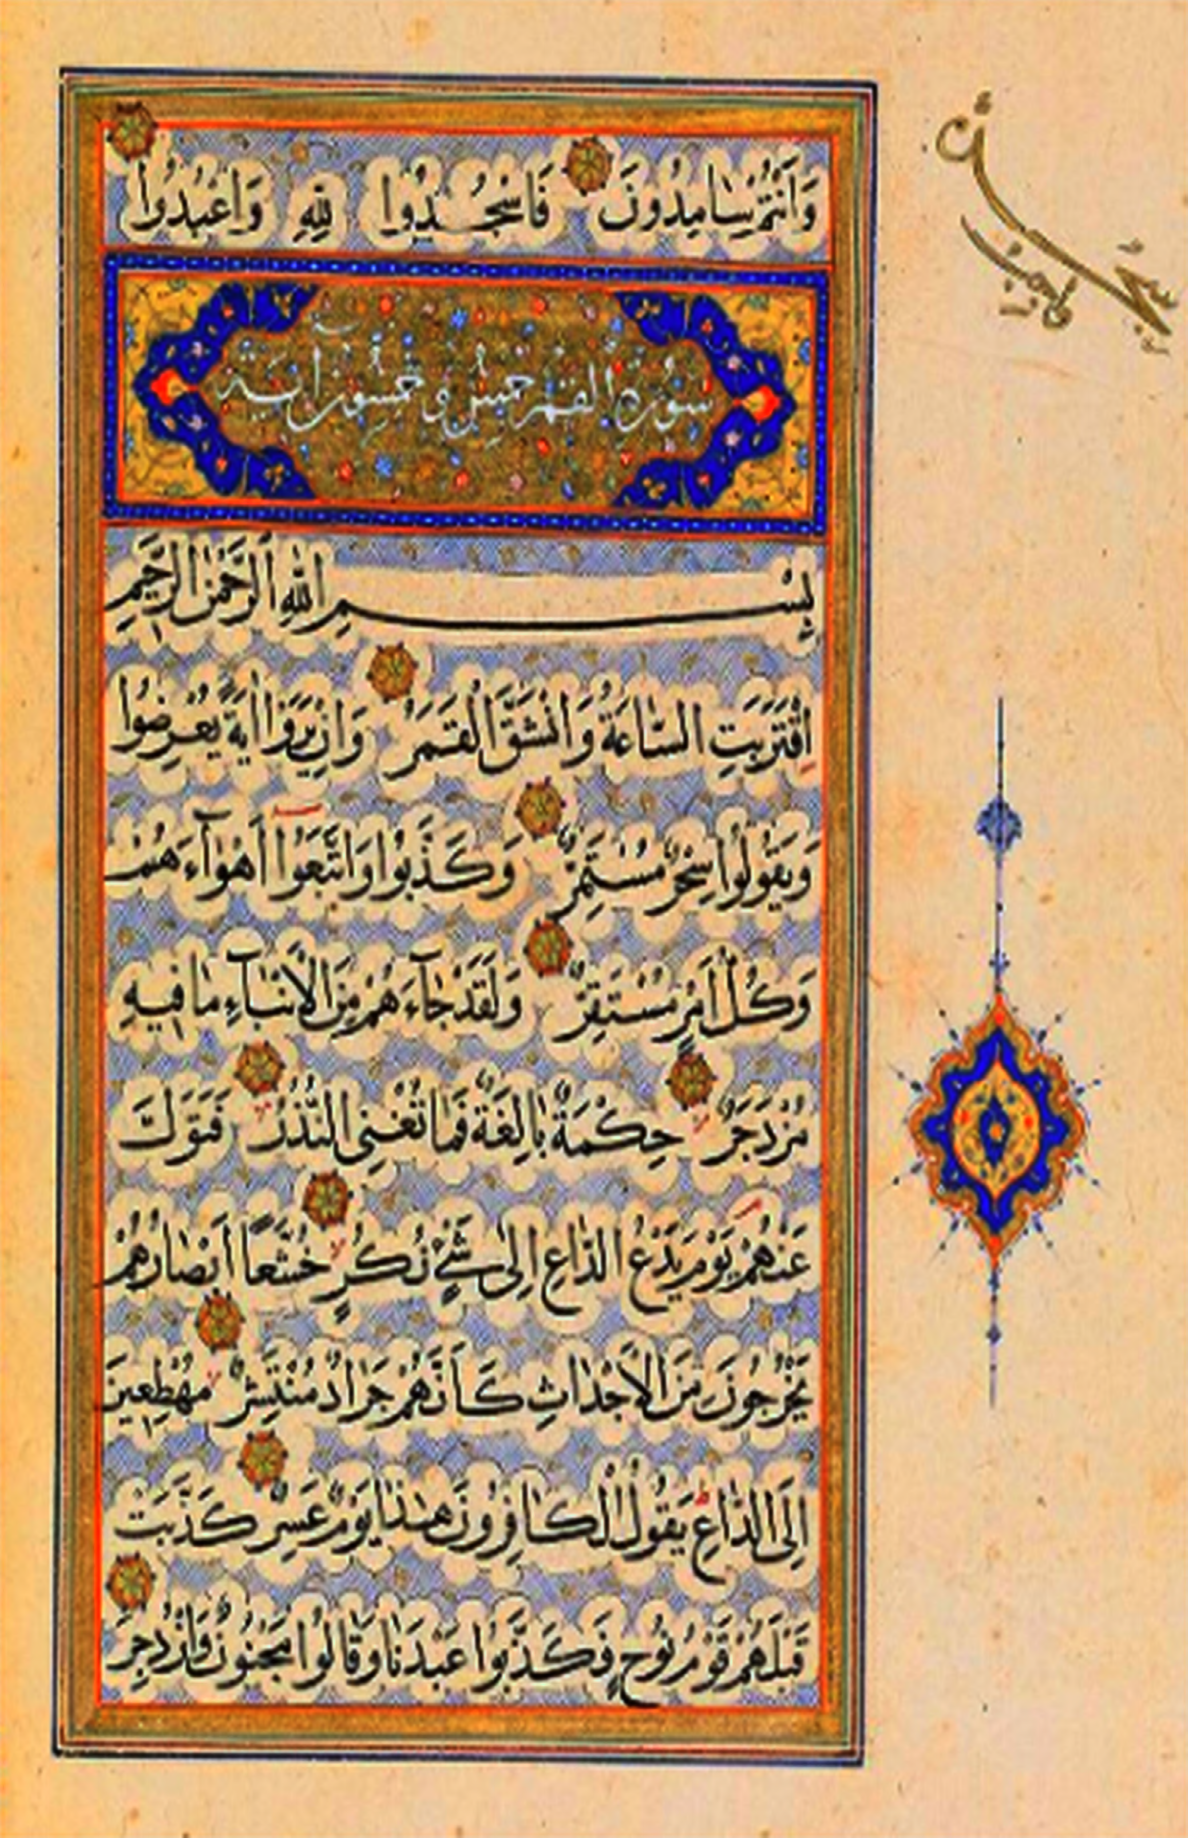 وَاَنْتُمْ سَامِدُونَ فَاسْجُدُوا لِلّٰهِ وَاعْبُدُوا
سورة القمر خمس و خمسون اية
بِسْمِ اللّٰهِ الرَّحْمٰنِ الرَّحِيمِ
اِقْتَرَبَتِ السَّاعَةُ وَانْشَقَّ الْقَمَرُ وَاِنْ يَرَوْا اٰيَةً يُعْرِضُوا
وَيَقُولُوا سِحْرٌ مُسْتَمِرٌّ وَكَذَّبُوا وَاتَّبَعُوا اَهْوَآءَهُمْ
وَكُلُّ اَمْرٍ مُسْتَقِرٌّ وَلَقَدْ جَآءَهُمْ مِنَ الْاَنْبَآءِ مَا فِيهِ
مُزْدَجَرٌ حِكْمَةٌ بَالِغَةٌ فَمَا تُغْنِى النُّذُرُ فَتَوَلَّ
عَنْهُمْ يَوْمَ يَدْعُ الدَّاعِ اِلٰى شَىْءٍ نُكُرٍ خُشَّعًا اَبْصَارُهُمْ
يَخْرُجُونَ مِنَ الْاَجْدَاثِ كَاَنَّهُمْ جَرَادٌ مُنْتَشِرٌ مُهْطِعِينَ
اِلَى الدَّاعِ يَقُولُ الْكَافِرُونَ هٰذَا يَوْمٌ عَسِرٌ كَذَّبَتْ
قَبْلَهُمْ قَوْمُ نُوحٍ فَكَذَّبُوا عَبْدَنَا وَقَالُوا مَجْنُونٌ وَازْدُجِرَ